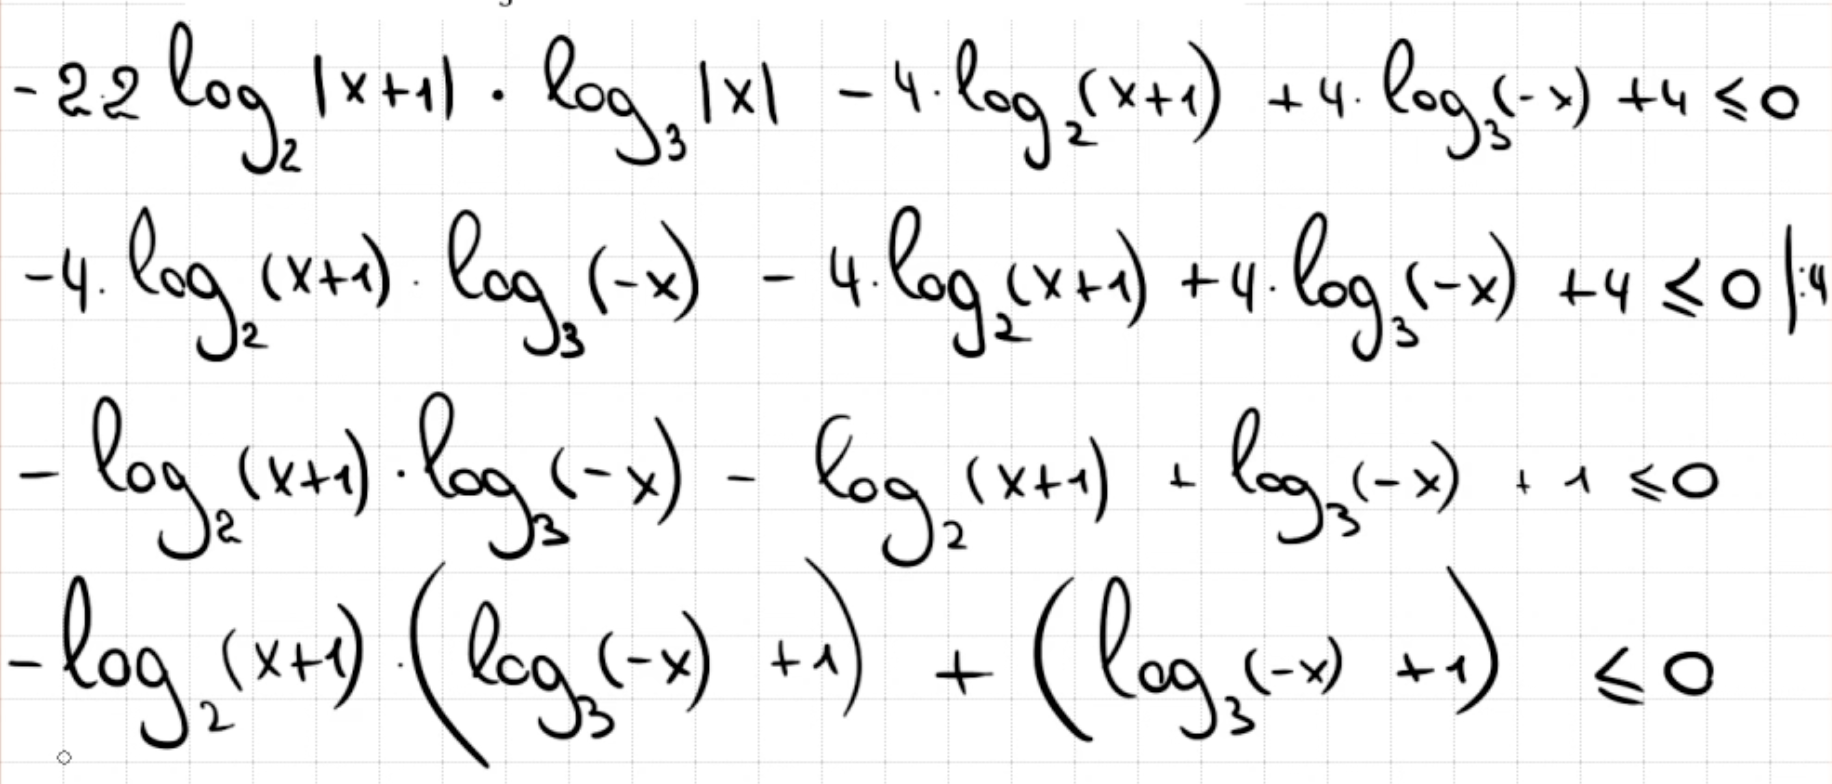 -2·2 log₂|x+1| · log₃|x| - 4·log₂(x+1) + 4·log₃(-x) + 4 ≤ 0
-4·log₂(x+1)·log₃(-x) - 4·log₂(x+1) + 4·log₃(-x) + 4 ≤ 0 |:4
-log₂(x+1)·log₃(-x) - log₂(x+1) + log₃(-x) + 1 ≤ 0
-log₂(x+1)·(log₃(-x) + 1) + (log₃(-x) + 1) ≤ 0